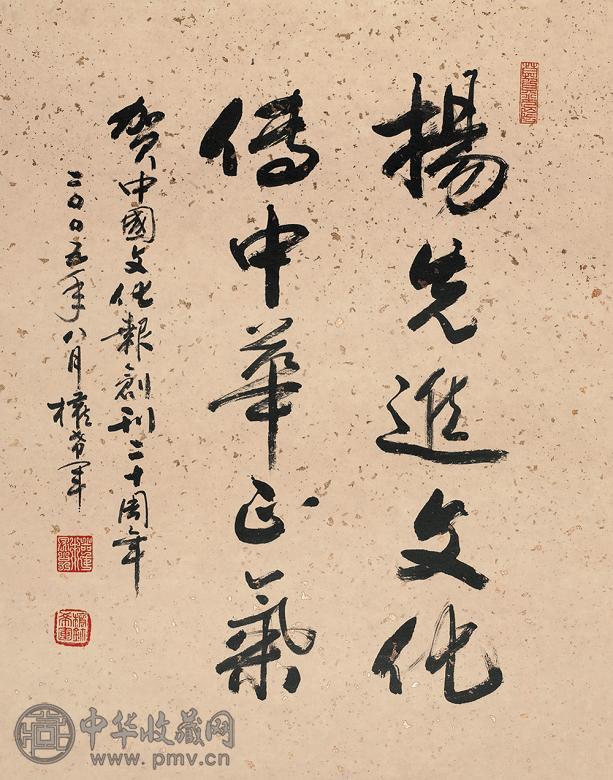 揚先進文化
傳中華正氣
賀中國文化報創刊二十周年
二〇〇五年八月權希軍
中华收藏网
www.pmv.cn